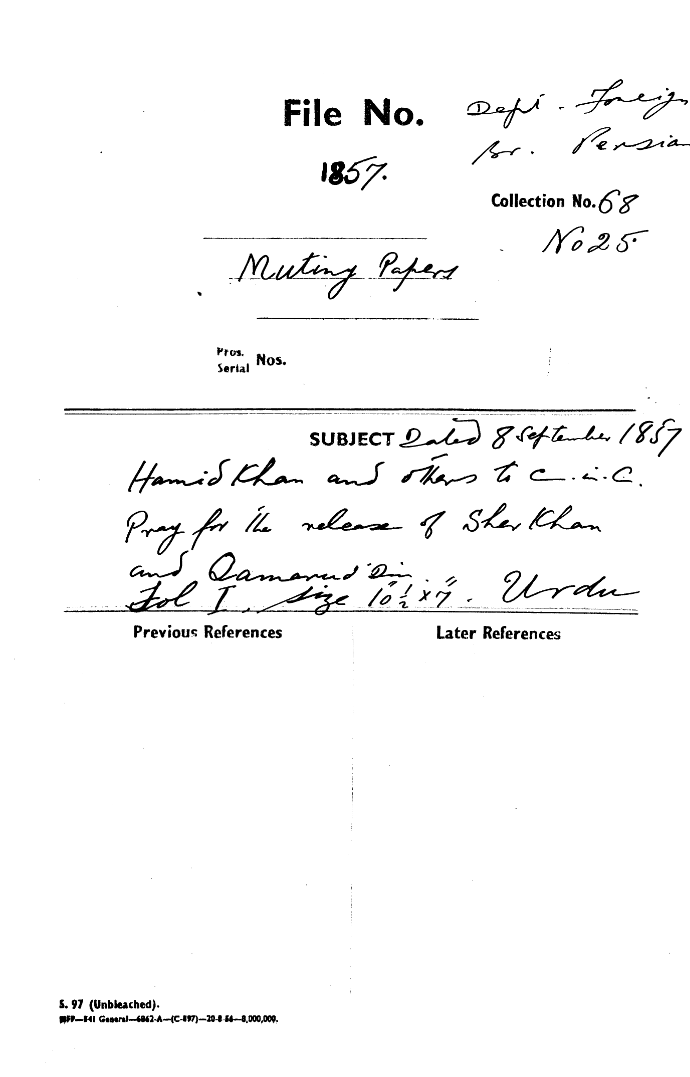 File No.
Dept. Foreign
Br. Persian
1857.
Collection No. 68
No 25
Mutiny Papers
Pros.
Serial Nos.
SUBJECT Dated 8 September 1857
Hamid Khan and others to C.-in-C.
Pray for the release of Sher Khan
and Qamarud Din.
Fol I. Size 10½" x 7". Urdu
Previous References
Later References
S. 97 (Unbleached).
General—6862-A—(C-897)—20-8-56—8,000,000.